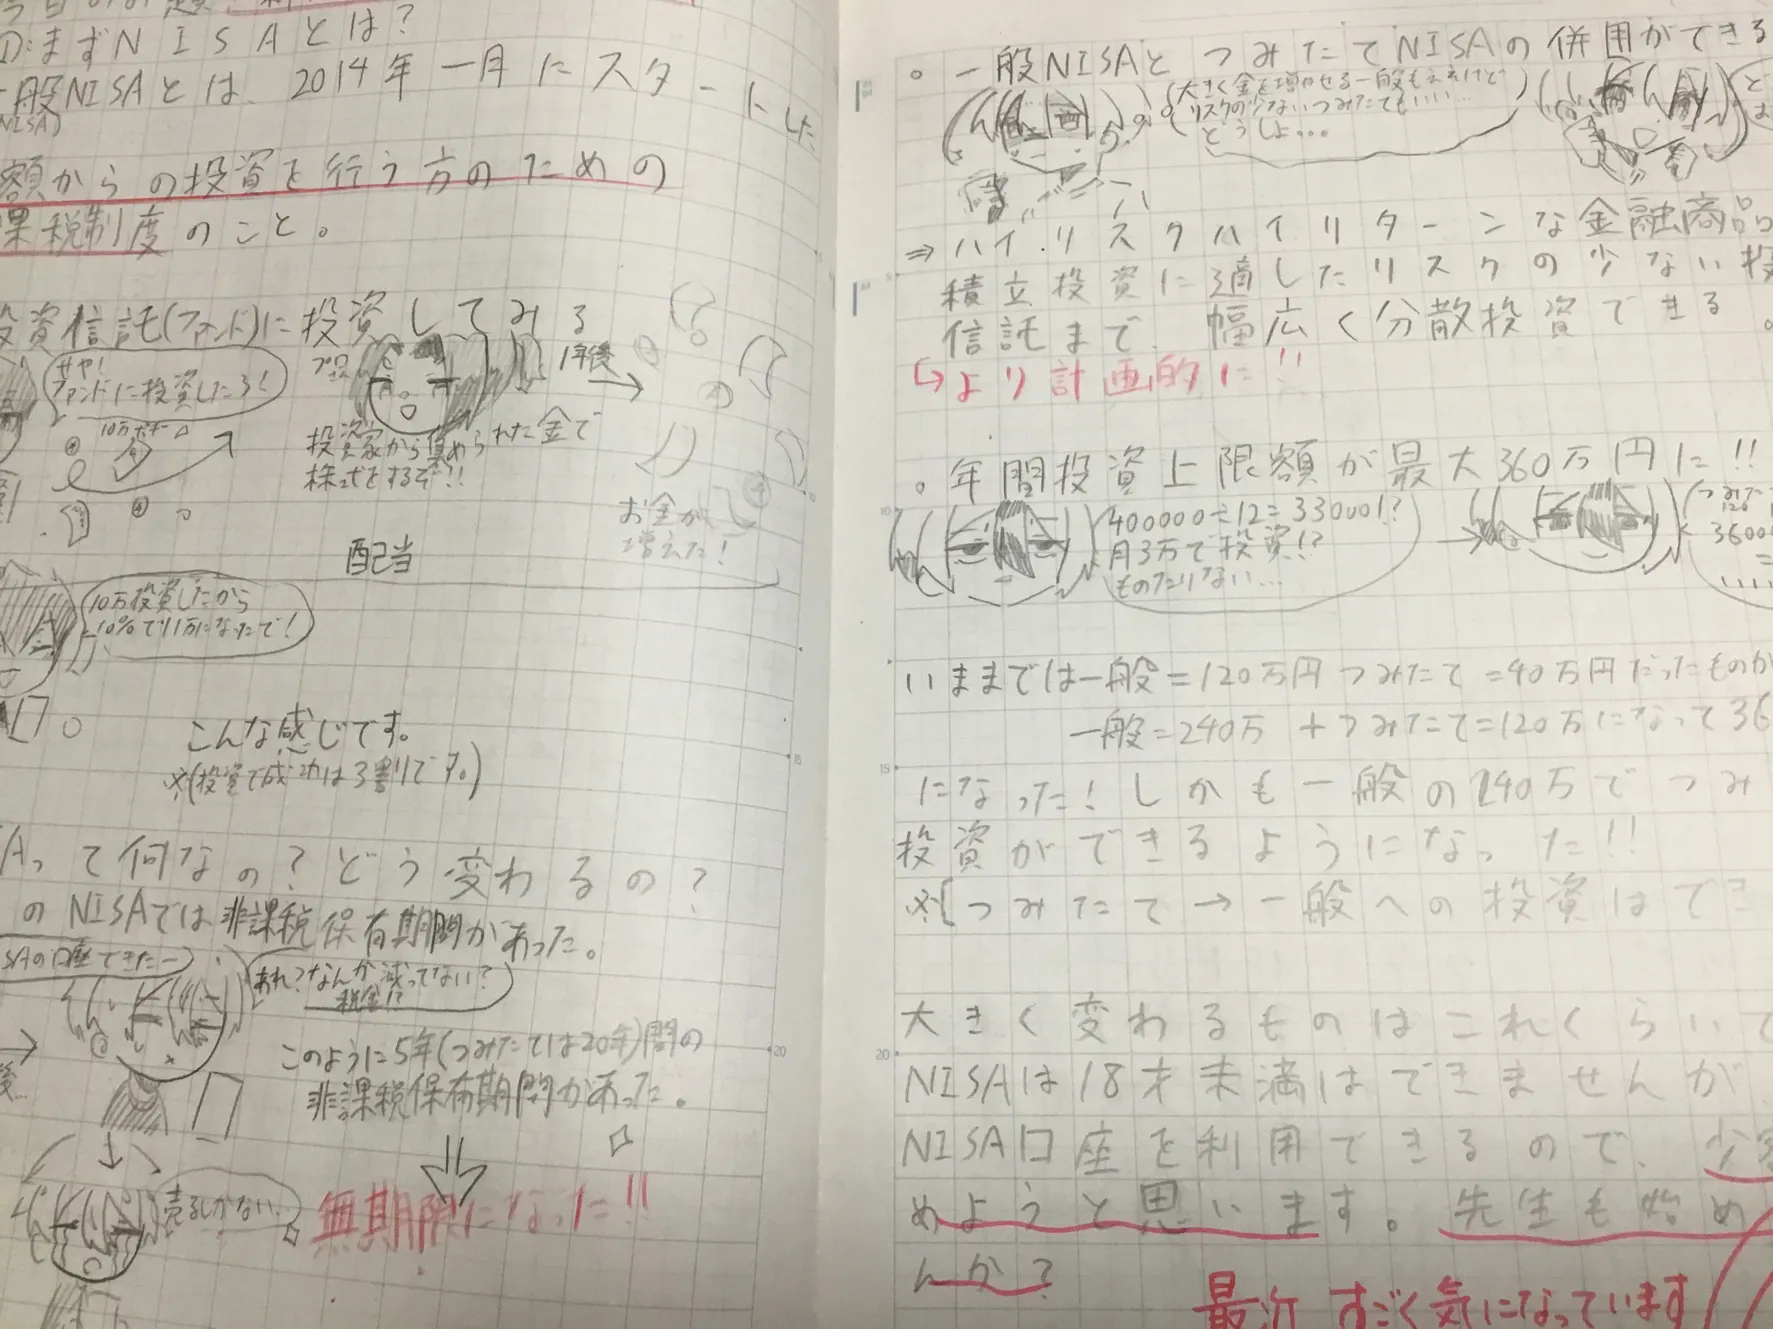 ①:まずNISAとは?
一般NISAとは、2014年一月にスタートした
(NISA)
額からの投資を行う方のための
課税制度のこと。
投資信託(ファンド)に投資してみる
せや!
ファンドに投資したろ!
10万
プロ
投資家から集められた金で
株式をするぞ!!
1年後
お金が
増えた!
配当
10万投資したから
10%で11万になったで!
こんな感じです。
※(投資で成功は3割りです。)
Aって何なの?どう変わるの?
のNISAでは非課税保有期間があった。
SAの口座できたー
あれ?なんか減ってない?
税金!?
後
このように5年(つみたては20年)間の
非課税保有期間があった。
売るしかない…
無期限になった!!
。一般NISAとつみたてNISAの併用ができる
大きく金を増やせる一般もええけど
リスクの少ないつみたてもいい…
どうしよ…
⇒ハイリスクハイリターンな金融商品
積立投資に適したリスクの少ない投
信託まで、幅広く分散投資できる。
↳より計画的に!!
。年間投資上限額が最大360万円に!!
400000÷12=33000!?
月3万で投資!?
ものたりない…
つみた
120
3600
=
いままでは一般=120万円つみたて=40万円だったものが
一般=240万+つみたて=120万になって36
になった!しかも一般の240万でつみ
投資ができるようになった!!
※[つみたて→一般への投資はでき
大きく変わるものはこれくらいで
NISAは18才未満はできませんが
NISA口座を利用できるので、少
めようと思います。先生も始め
んか?
最近すごく気になっています